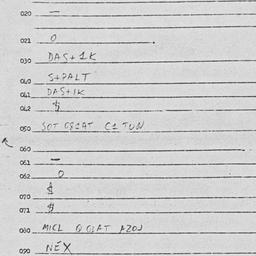 020 —
021 0
030 DAS+1K
040 S+PALT
041 DAS+1K
042 $
050 SOT C1 TUN
060
061 —
062 0
070 $
071 $
080 MICL
090 NEX